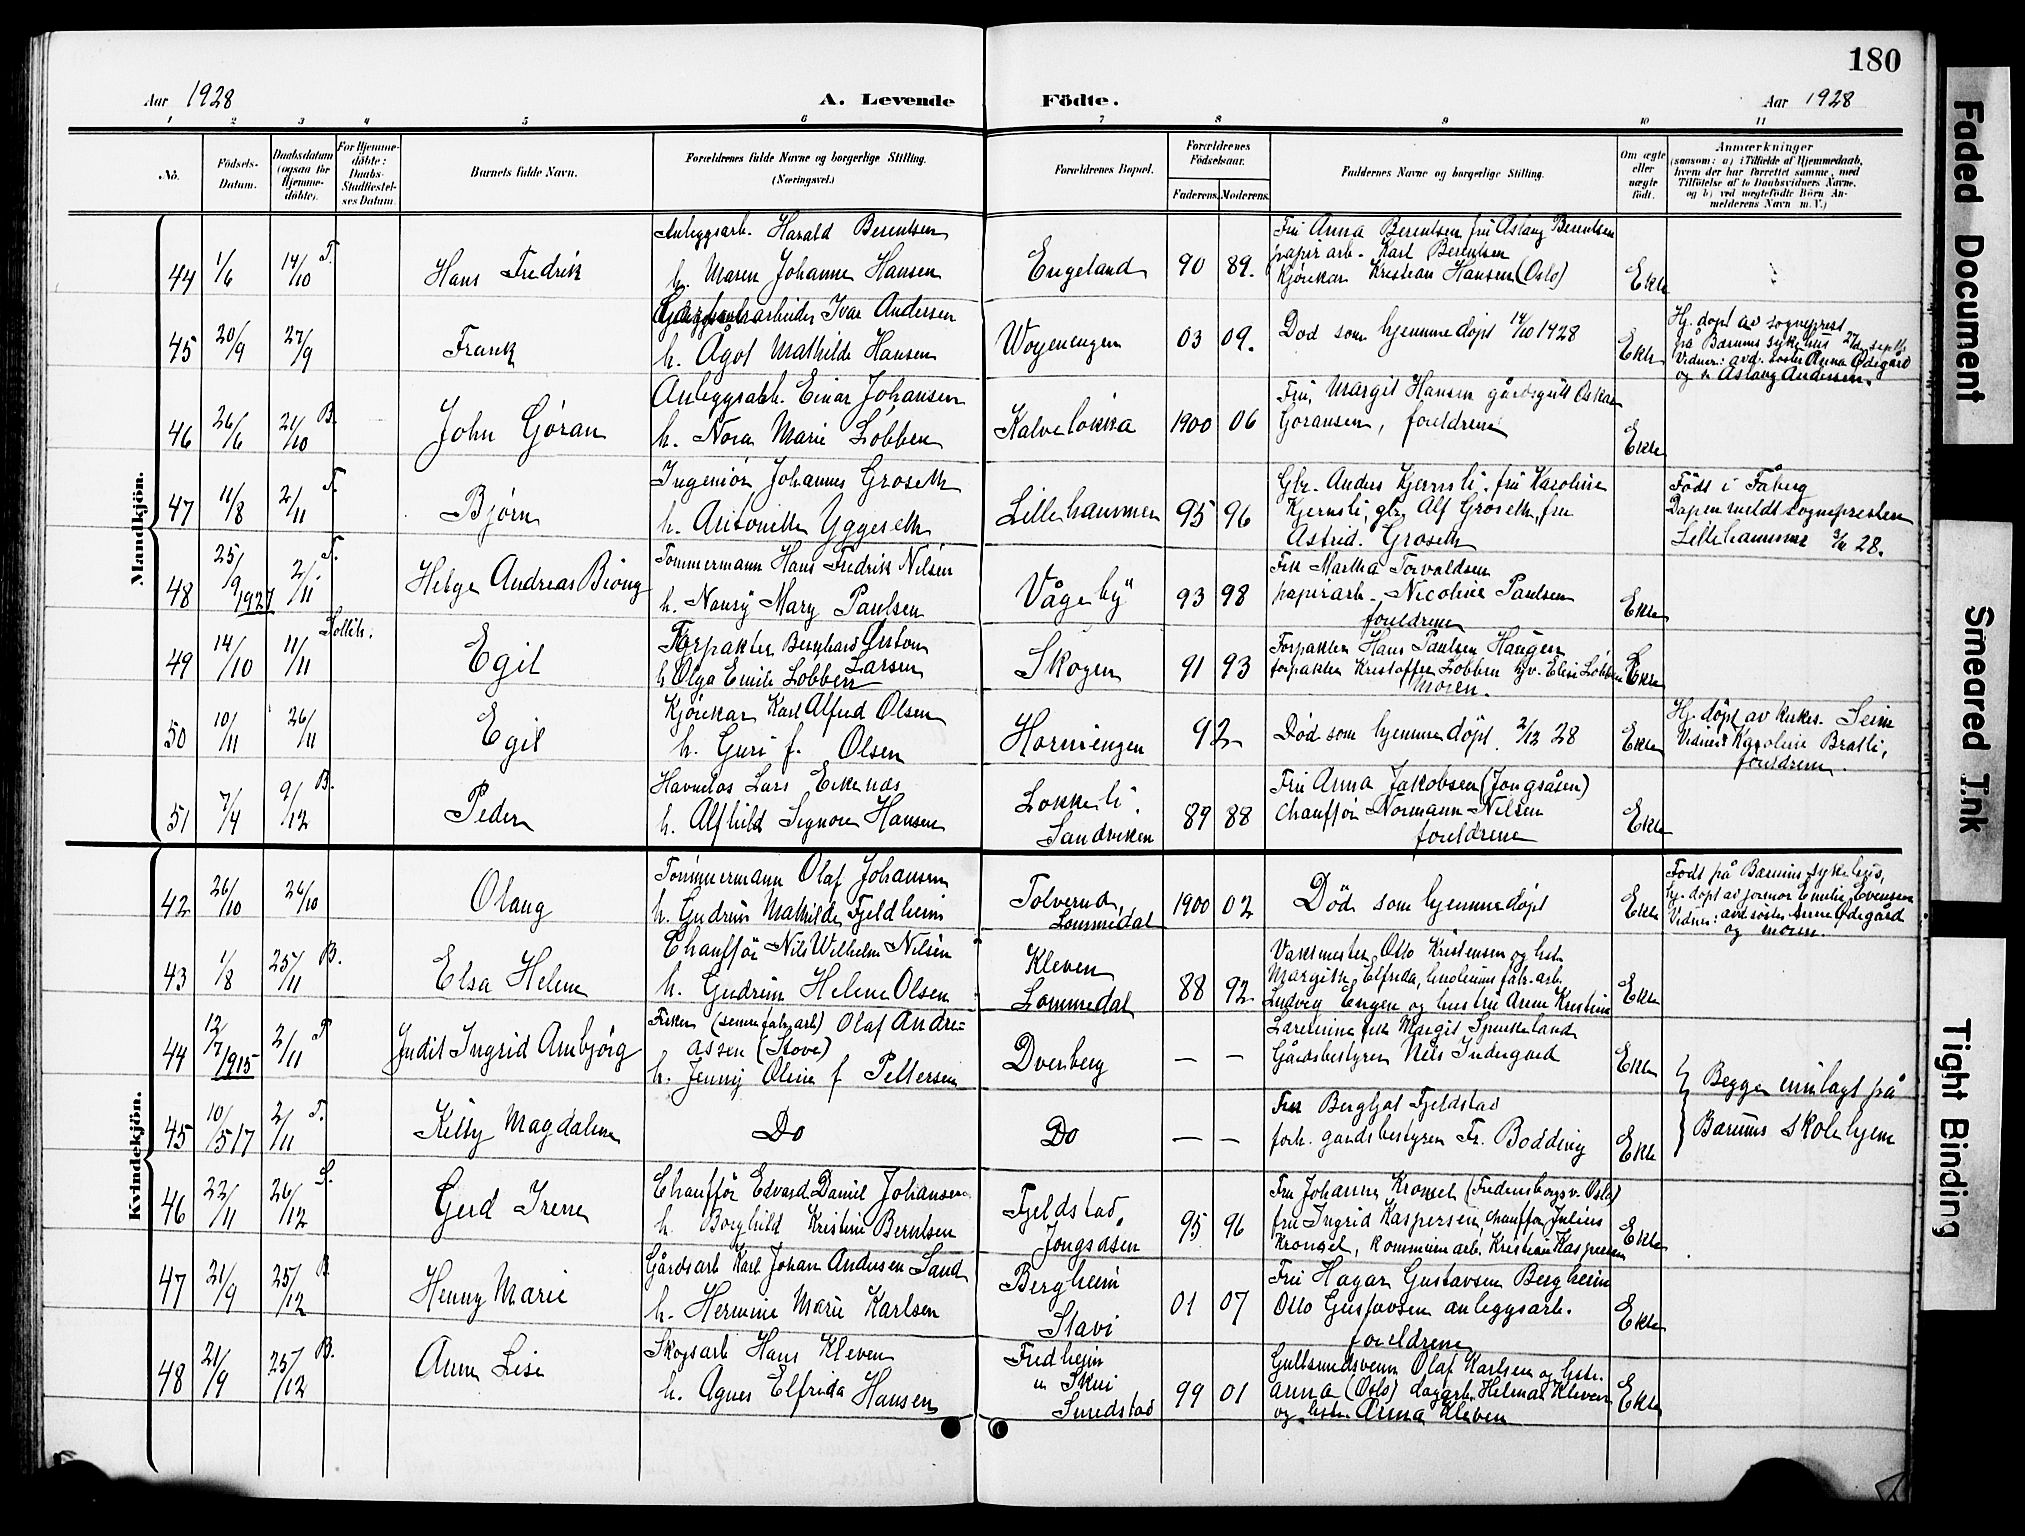 180
Aar 1928
A. Levende Födte.
Aar 1928
1 2 3 4 5 6 7 8 9 10 11
No.
Födsels-
Datum.
Daabsdatum
(ogsaa for
Hjemme-
döbte).
For Hjemme-
döbte:
Daabs-
Stadfæstel-
ses Datum.
Barnets fulde Navn.
Forældrenes fulde Navne og borgerlige Stilling.
(Næringsvei.)
Forældrenes Bopæl.
Forældrenes
Födselsaar.
Faderens. Moderens.
Faddernes Navne og borgerlige Stilling.
Om ægte
eller
uægte
født.
Anmærkninger
(saasom: a) i Tilfælde af Hjemmedaab,
hvem der har forrettet samme, med
Tilföielse af to Daabsvidners Navne,
og b) ved uegtefödte Börn An-
melderens Navn m. V.)
Mandkjön.
44 1/6 14/10 T. Hans Fredrik
Anleggsarb. Harald Berentsen
h. Maren Johanne Hansen
Engeland 90 89.
Fru Anna Berentsen fru Aslaug Berentsen
papirarb. Karl Berentsen
Kjørekar Kristian Hansen (Oslo)
Ekte
45 20/9 27/9 Frank
arbeider Ivar Andersen
h. Ågot Mathilde Hansen
Woyenengen 03 09.
Død som hjemmedøpt 14/10 1928
Ekte
Hj. døpt av sogneprest
på Bærums sykehus
Vidner: avd. søster Anna Ødegård
og Aslaug Andersen.
46 26/6 21/10 B. John Gøran
Anleggsarb. Einar Johansen
h. Nora Marie Løbben
Kalveløkka 1900 06
Fru Margit Hansen gårdsgutt Oskar
Gøransen, foreldrene
Ekte
47 11/8 2/11 T. Bjørn
Ingeniør Johannes Groseth
h. Antonette Yggeseth
Lillehammer 95 96
Gbr. Anders Kjernsli, fru Karoline
Kjernsli, gbr. Alf Groseth, fru
Astrid Groseth
Født i Fåberg
Dåpen meldt sognepresten
Lillehammer 28.
48 25/9 1927 2/11 T. Helge Andreas Biong
Tømmermann Hans Fredrik Nilsen
h. Nansy Mary Paulsen
Vågeby 93 98
Frk Martha Torvaldsen
papirarb. Nicoline Paulsen
foreldrene
Ekte
49 14/10 11/11 Egil
Forpakter Berghard Anton
Larsen
h. Olga Emilie Løbben
Skogen 91 93
Forpakter Hans Paulsen Haugen
forpakter Kristoffer Løbben Elise Løbben
moren.
Ekte
50 10/11 26/11 Egil
Kjørekar Karl Alfred Olsen
h. Guri f. Olsen
Horniengen 92
Død som hjemmedøpt 2/12 28
Ekte
Hj. døpt av kirkes. Seim
Vidner: Karoline Bratli,
foreldrene.
51 7/4 9/12 B. Peder
Havnelos Lars Eikenes
h. Alfhild Signora Hansen
Løkkeli
Sandviken 89 88
Fru Anna Jakobsen (Jongsåsen)
chauffør Normann Nilsen
foreldrene
Ekte
Kvindekjön.
42 26/10 26/10 Olaug
Tømmermann Olaf Johansen
h. Gudrun Mathilde Fjeldheim
Tolverud,
Lommedal 1900 02
Død som hjemmedøpt
Ekte
Født på Bærums sykehus,
hj. døpt av jormor Emilie Evensen
Vidner: avd søster Anne Ødegård
og moren.
43 1/8 25/11 B. Elsa Helene
Chauffør Nils Wilhelm Nilsen
h. Gudrun Helene Olsen
Kleven
Lommedal 88 92
Vaktmester Otto Kristensen og hst.
Margith Elfrida, linoleums fabr. arb.
Ludvig Engen og hustru Anne Kristine
Ekte
44 12/7 1915 2/11 T Judit Ingrid Ambjørg
Fisker Olaf Andre=
assen (Stove)
h. Jenny Oline f Pettersen
Dverberg — —
Lærerinne frk Margit Spurkeland
Gårdsbestyrer Nils Indergard
Ekte
Begge innlagt på
Bærums skolehjem
45 10/5 17 2/11 T. Kitty Magdalene
Do
Do — —
Frk Bergljot Fjeldstad
forh. gårdsbestyrer Fr. Bødding
Ekte
46 22/11 26/12 S. Gerd Irene
Chauffør Edvard Daniel Johansen
h. Borghild Kristine Berntsen
Fjeldstad,
Jongsåsen 95 96
Fru Johanne Krongel (Fredensborgsv. Oslo)
fru Ingrid Kaspersen, chauffør Julius
Krongel, kommunearb. Kristian Kaspersen
Ekte
47 21/9 25/12 B. Henny Marie
Gårdsarb Karl Johan Andersen Sand
h. Hermine Marie Karlsen
Bergheim
Stavi 01 07
Fru Hagar Gustavsen Bergheim
Otto Gustavsen anleggsarb.
foreldrene
Ekte
48 21/9 25/12 B. Anne Lise
Skogsarb Hans Kleven
h. Agnes Elfrida Hansen
Fredheim
u Skui
Smedstad 99 01
Gullsmedsvenn Olaf Karlsen og hst.
Anna (Oslo) dagarb. Helmar Kleven
og hstr. Anna Kleven
Ekte
Faded Document
Smeared Ink
Tight Binding